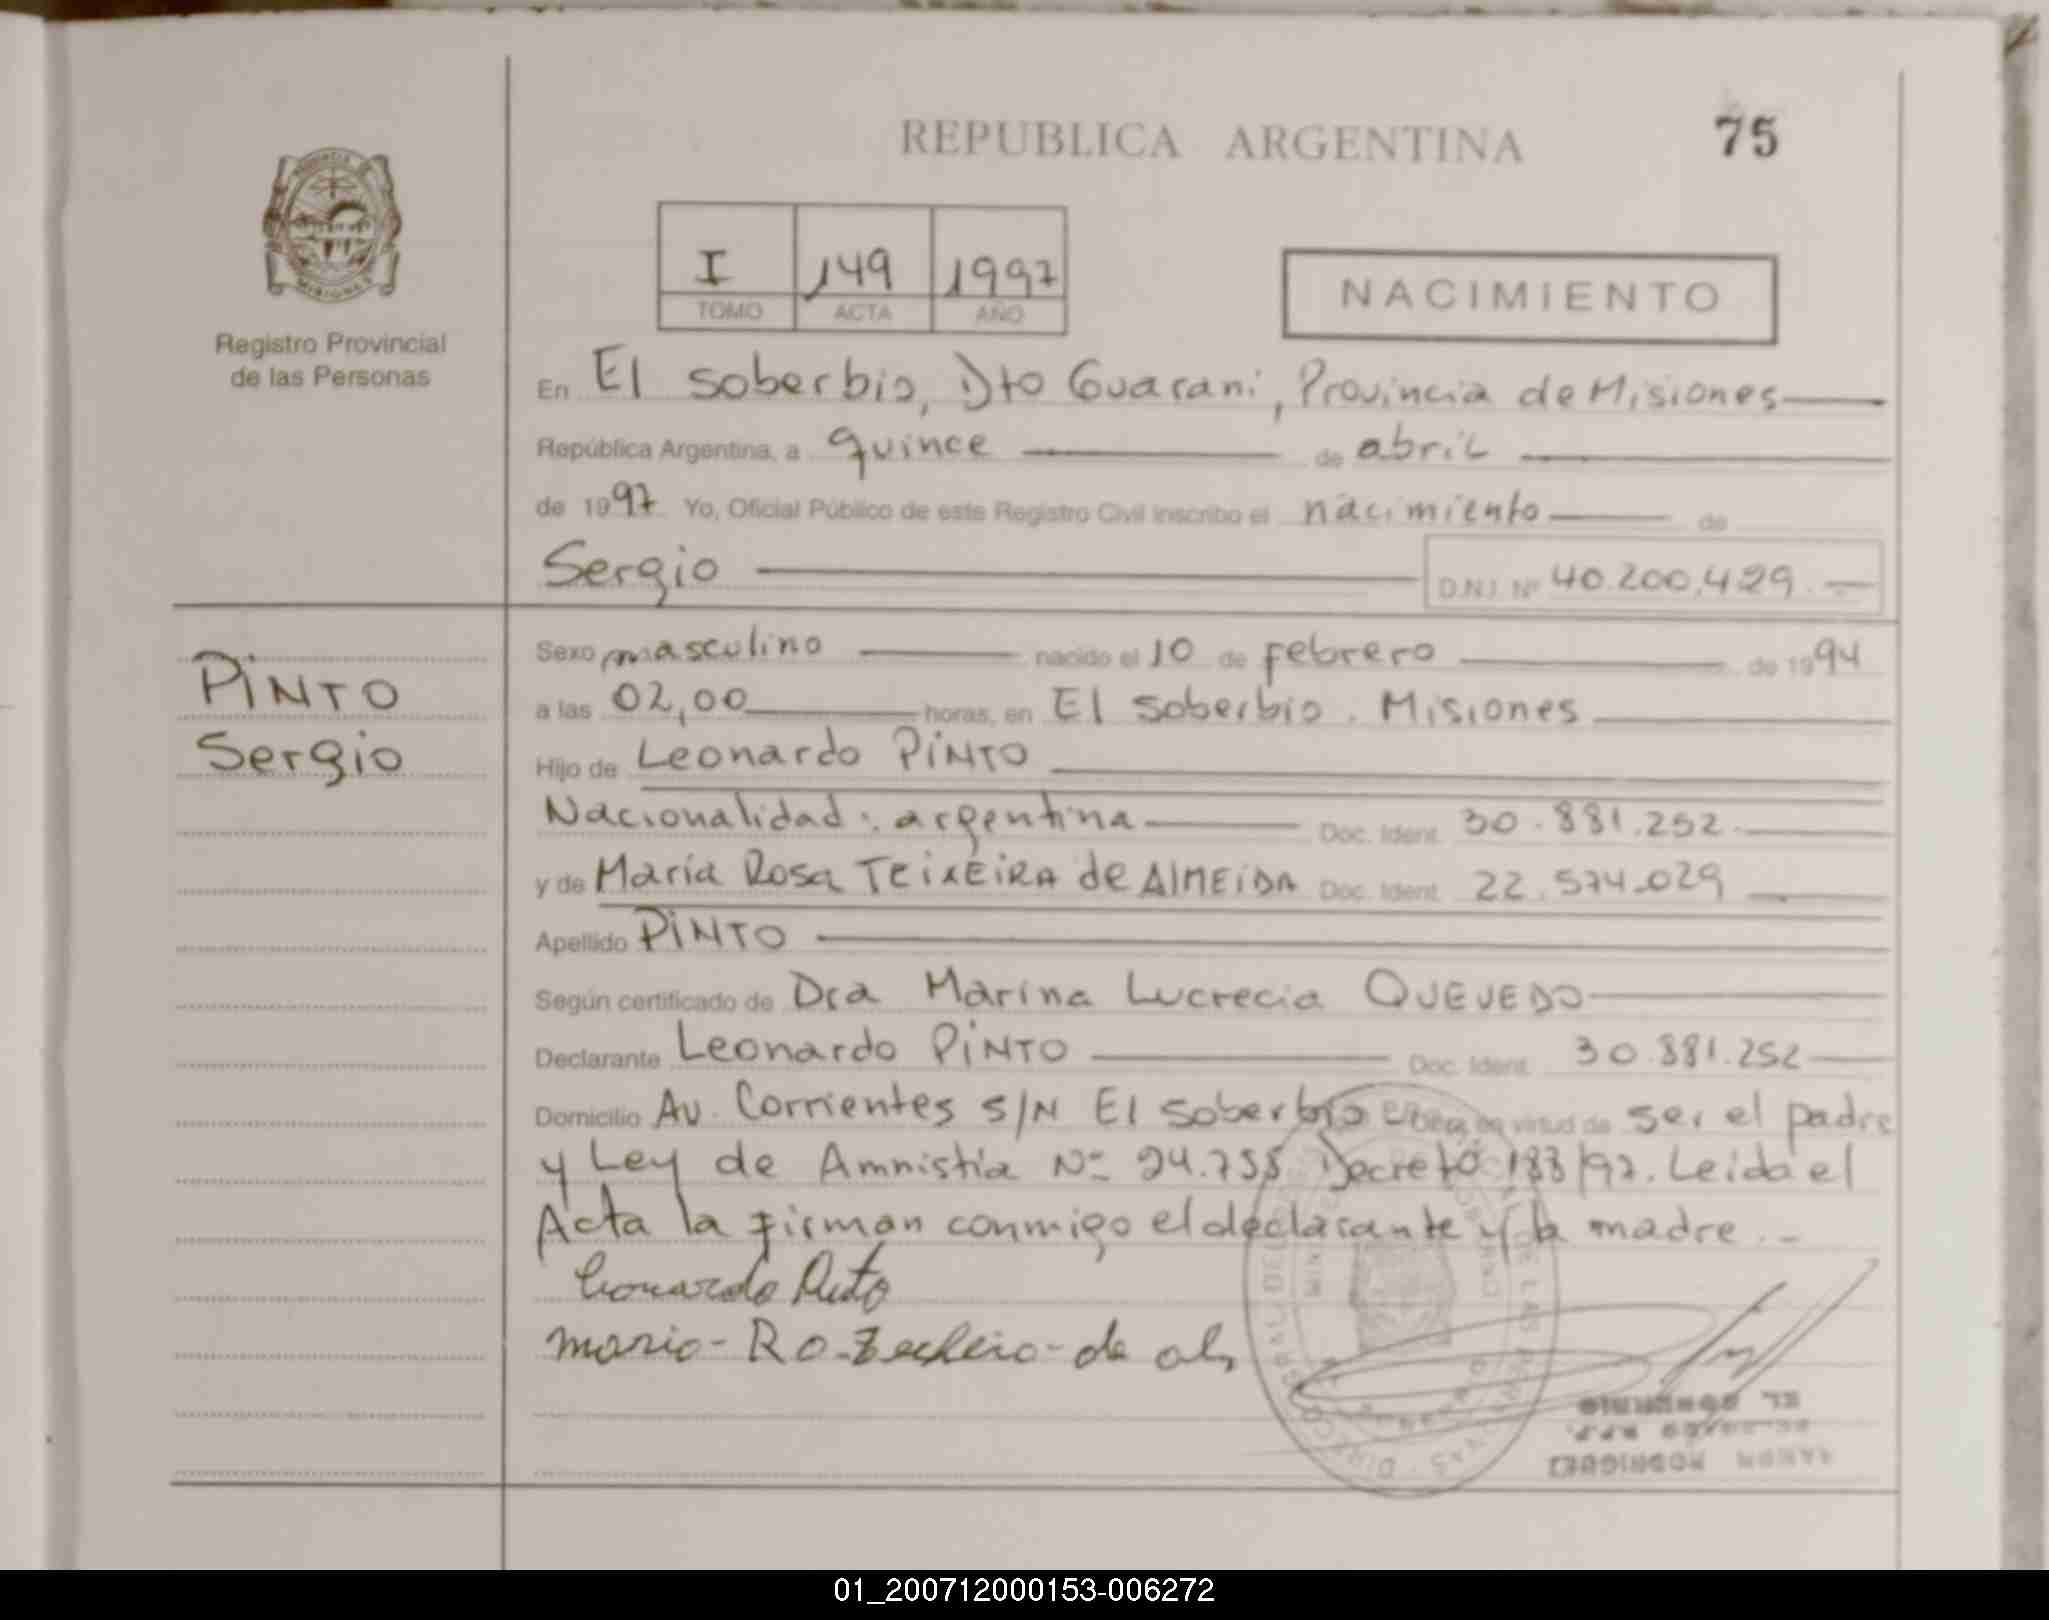 REPUBLICA ARGENTINA
75
I 149 1997
TOMO ACTA AÑO
NACIMIENTO
Registro Provincial
de las Personas
En El soberbio, Dto Guarani, Provincia de Misiones
República Argentina, a quince de abril
de 1997 Yo, Oficial Público de este Registro Civil inscribo el nacimiento de
Sergio D.N.I. Nº 40.200.429.-
PINTO
Sergio
Sexo masculino nacido el 10 de febrero de 1994
a las 02,00 horas, en El soberbio. Misiones
Hijo de Leonardo PINTO
Nacionalidad: argentina Doc. Ident. 30.881.252.
y de María Rosa TEIXEIRA de ALMEIDA Doc. Ident. 22.574.029
Apellido PINTO
Según certificado de Dra Marina Lucrecia QUEVEDO
Declarante Leonardo PINTO Doc. Ident. 30.881.252
Domicilio Av. Corrientes S/N El soberbio en virtud de ser el padre
y Ley de Amnistía Nº 24.755 Decreto 183/97. Leida el
Acta la firman conmigo el declarante y la madre.-
Leonardo Pinto
EL SOBERBIO
RAMON RODRIGUEZ
01_200712000153-006272